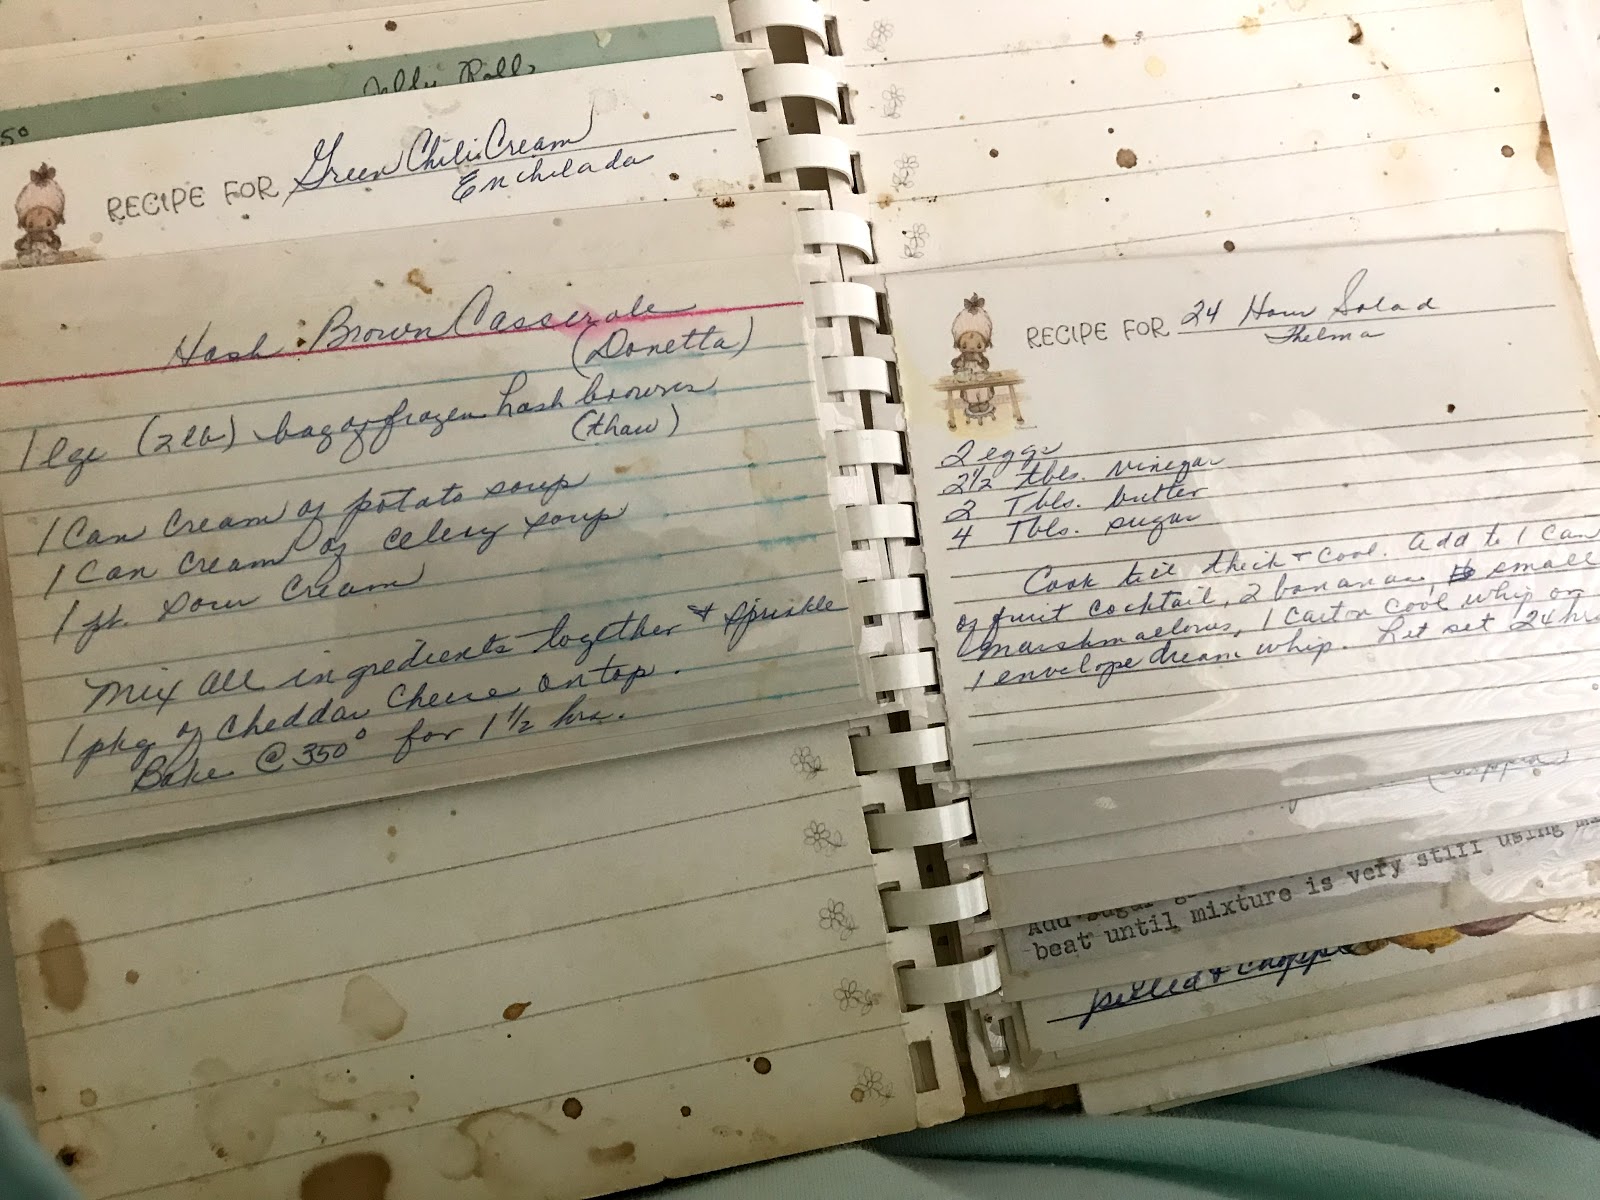 Jelly Rolls
50
RECIPE FOR Green Chili Cream
Enchilada
Hash Brown Casserole
(Donetta)
1 lge (2 lb) bag of frozen hash browns
(thaw)
1 Can Cream of potato soup
1 Can Cream of celery soup
1 pt. sour cream
Mix all ingredients together & sprinkle
1 pkg of cheddar cheese on top.
Bake @ 350° for 1 1/2 hrs.
RECIPE FOR 24 Hour Salad
Thelma
2 eggs
2 1/2 tbls. vinegar
2 Tbls. butter
4 Tbls. sugar
Cook till thick & cool. Add to 1 Can
of fruit cocktail, 2 bananas, small
marshmallows, 1 carton cool whip or
1 envelope dream whip. Let set 24 hrs
Add sugar
beat until mixture is very still using